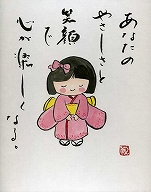 あなたの
やさしさと
笑顔
で
心が楽しくなる。